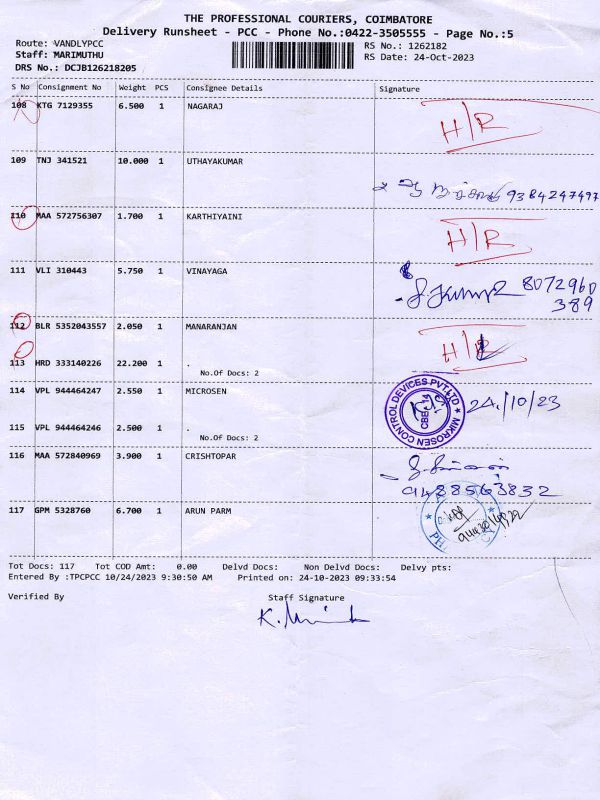 THE PROFESSIONAL COURIERS, COIMBATORE
Delivery Runsheet - PCC - Phone No.:0422-3505555 - Page No.:5
Route: VANDLYPCC
Staff: MARIMUTHU
DRS No.: DCJB126218205
RS No.: 1262182
RS Date: 24-Oct-2023
S No Consignment No Weight PCS Consignee Details Signature
108 KTG 7129355 6.500 1 NAGARAJ H/R
109 TNJ 341521 10.000 1 UTHAYAKUMAR 9384247497
110 MAA 572756307 1.700 1 KARTHIYAINI H/R
111 VLI 310443 5.750 1 VINAYAGA 8072960
389
112 BLR 5352043557 2.050 1 MANARANJAN H/R
113 HRD 333140226 22.200 1 .
No.Of Docs: 2
114 VPL 944464247 2.550 1 MICROSEN 24/10/23
MIKROSEN CONTROL DEVICES PVT.LTD
CBE-14
115 VPL 944464246 2.500 1 .
No.Of Docs: 2
116 MAA 572840969 3.900 1 CRISHTOPAR
9488563832
117 GPM 5328760 6.700 1 ARUN PARM
Tot Docs: 117 Tot COD Amt: 0.00 Delvd Docs: Non Delvd Docs: Delvy pts:
Entered By :TPCPCC 10/24/2023 9:30:50 AM Printed on: 24-10-2023 09:33:54
Verified By Staff Signature